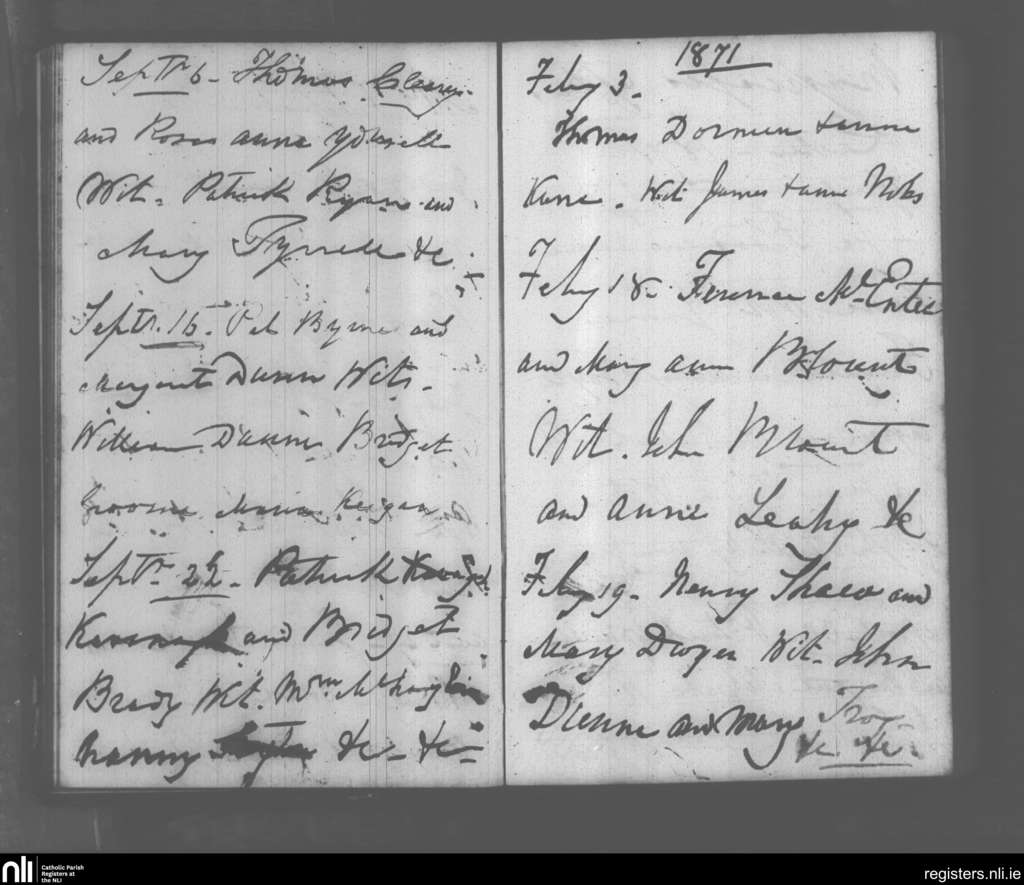 Septr 6 - Thomas Cleary
and Rosas anna
Wit. Patrick Ryan and
Mary Tyrrell &c
Septr. 16. Pat Byrne and
Margaret Dunn Wits.
William Dunne Bridget
Groome Maria Keegan
Septr 22 - Patrick
Kavanagh and Bridget
Brady Wit. Wm McLaughlin
Nanny &c - &c -
1871
Feby 3.
Thomas Dornin & anne
Kane. Wit James & anne Noks
Feby 18. Terence McEntee
and Mary ann Blount
Wit. John Blount
and annie Leahy &c
Feby 19. Henry Shaw and
Mary Dwyer Wit. John
Dunne and Mary Troy
&c &c -
nli
Catholic Parish
Registers at
the NLI
registers.nli.ie